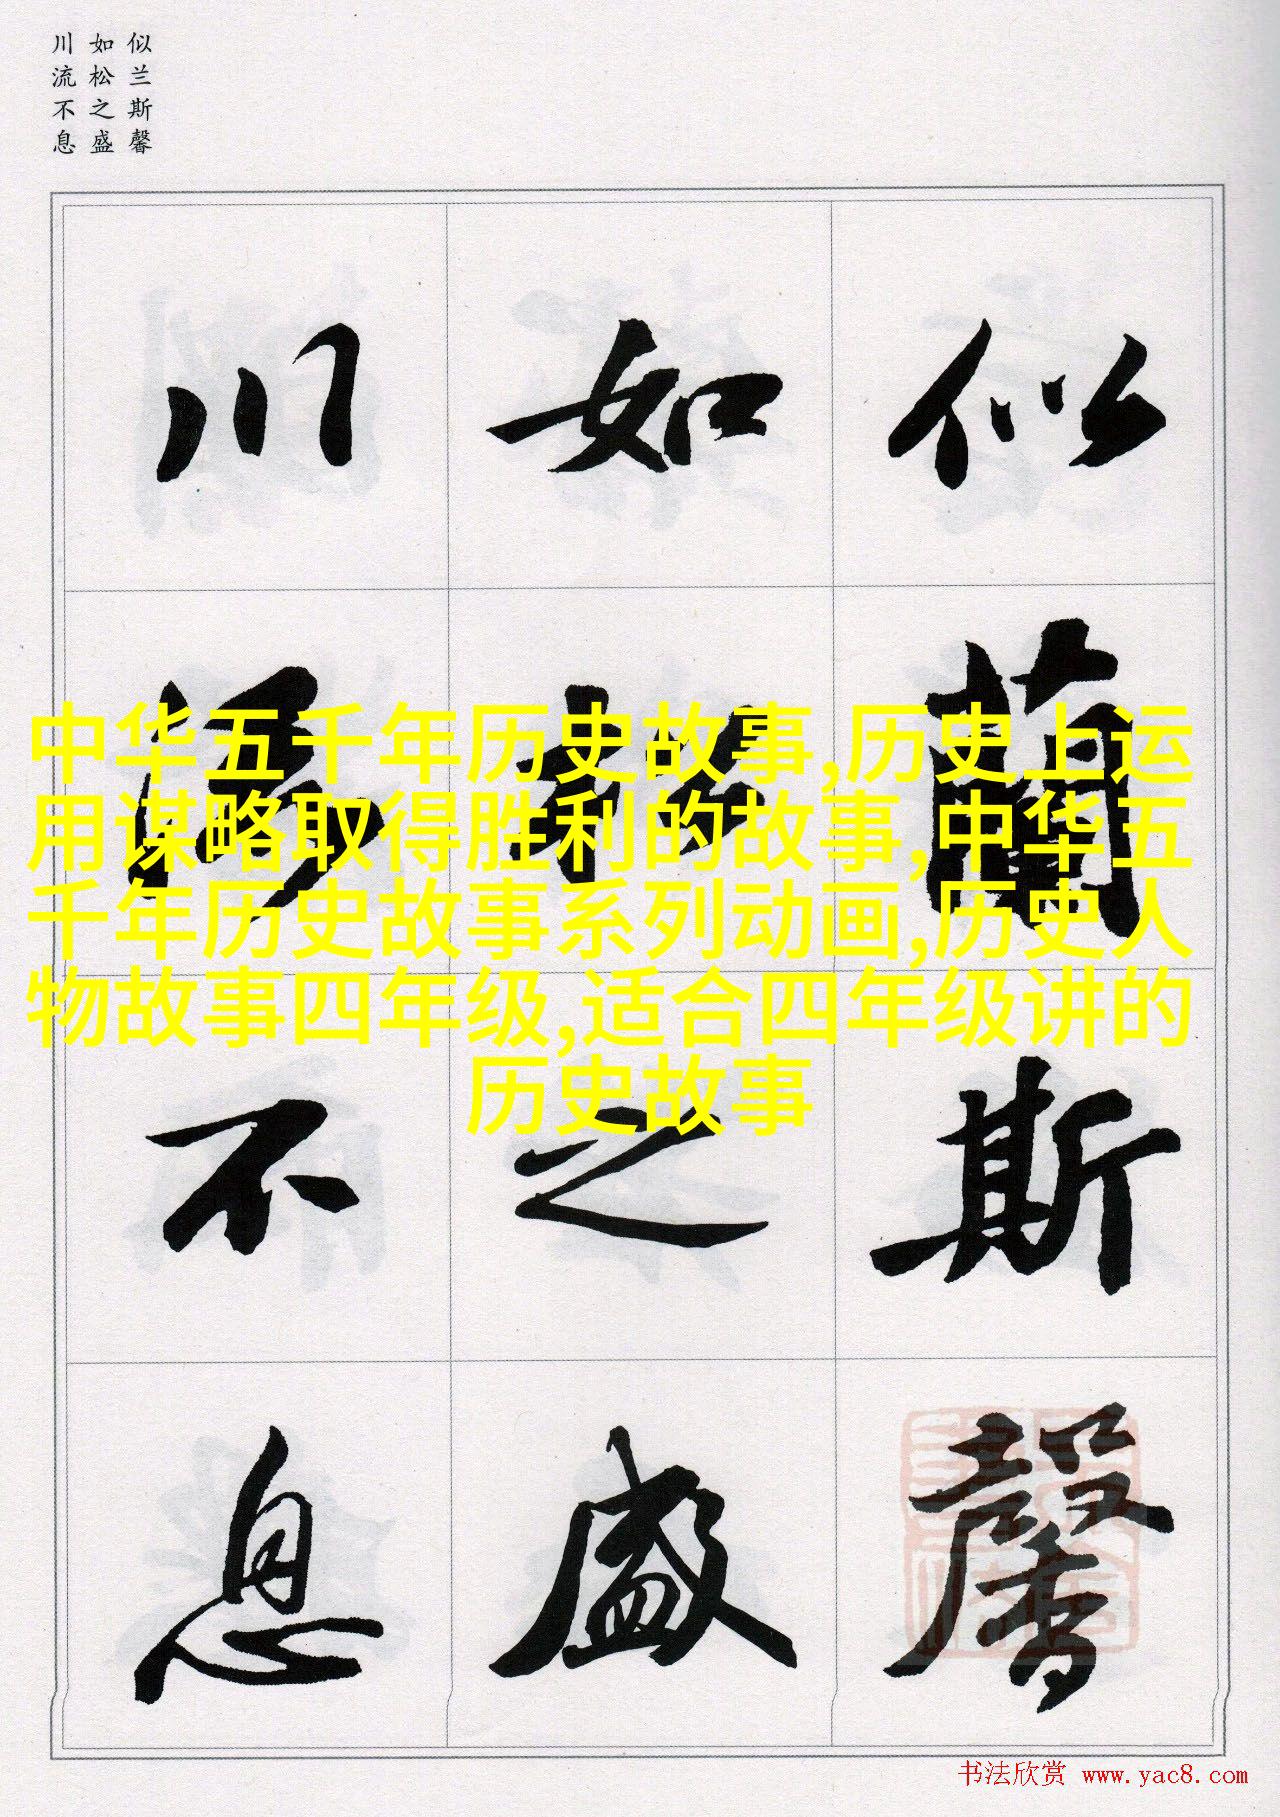 似兰斯馨
如松之盛
川流不息
似蘭斯馨
如松之盛
川流不息
中华五千年历史故事,历史上运
用谋略取得胜利的故事,中华五
千年历史故事系列动画,历史人
物故事四年级,适合四年级讲的
历史故事
书法欣赏 www.yac8.com